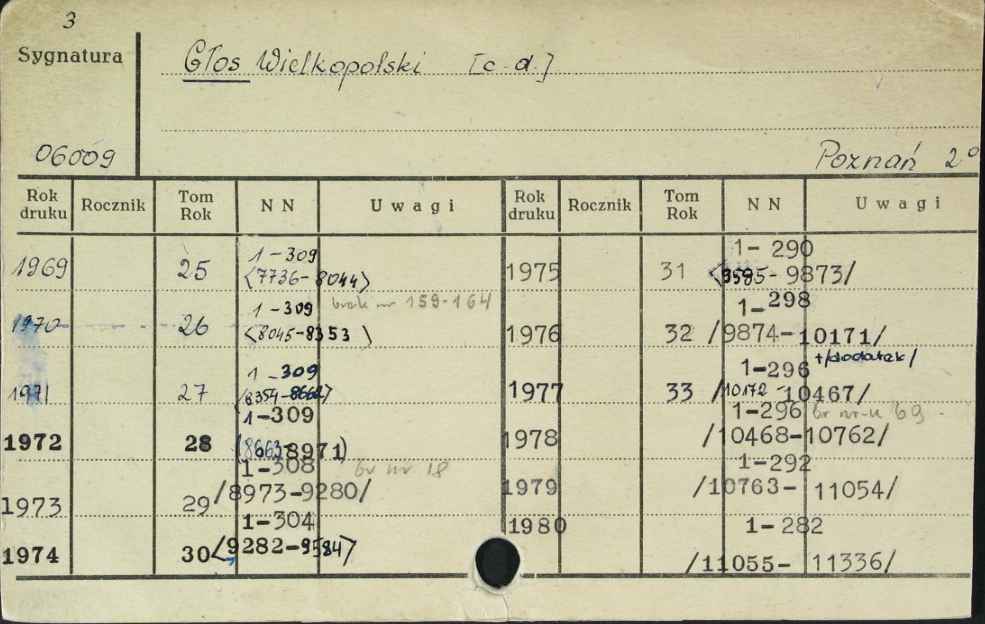 3
Sygnatura
Głos Wielkopolski [c.d.]
06009
Poznań 2°
Rok druku Rocznik Tom Rok NN Uwagi Rok druku Rocznik Tom Rok NN Uwagi
1969 25 1-309
<7736-8044>
1970 26 1-309 brak nr 159-164
<8045-8353>
1971 27 1-309
/8354-8662/
1972 28 1-309
(8663-8971)
1973 29 1-308 br nr 18
/8973-9280/
1974 30 1-304
<9282-9584>
1975 31 1-290
<9585-9873/
1976 32 1-298
/9874-10171/
1977 33 1-296 +/dodatek/
/10172-10467/
1978 1-296 br nr-u 69-
/10468-10762/
1979 1-292
/10763-11054/
1980 1-282
/11055-11336/